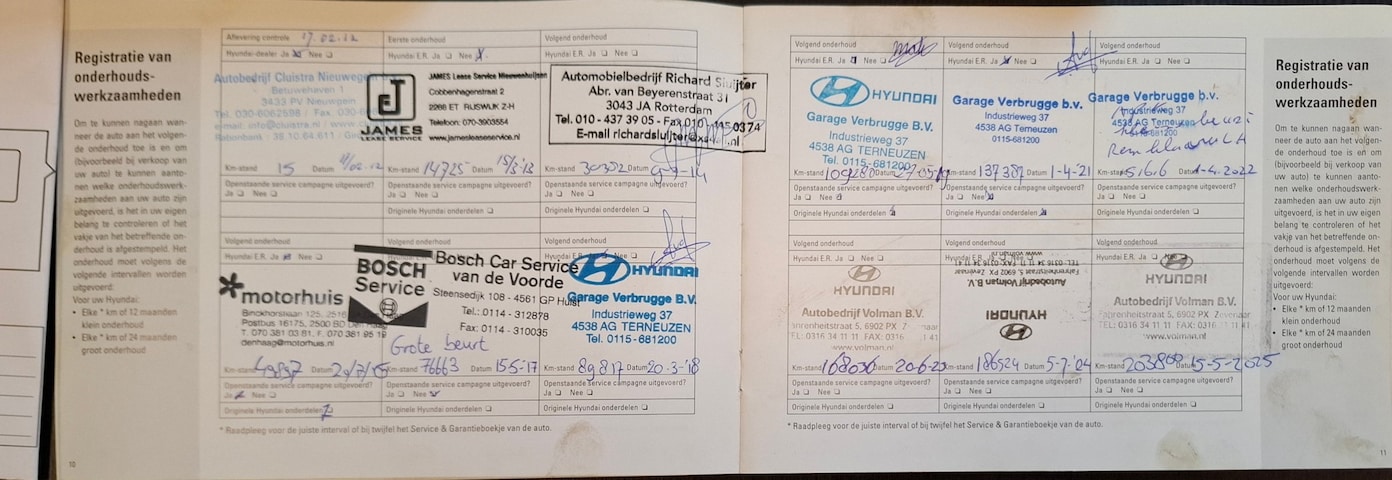 Registratie van
onderhouds-
werkzaamheden
Om te kunnen nagaan wan-
neer de auto aan het volgen-
de onderhoud toe is en om
(bijvoorbeeld bij verkoop van
uw auto) te kunnen aanto-
nen welke onderhoudswerk-
zaamheden aan uw auto zijn
uitgevoerd, is het in uw eigen
belang te controleren of het
vakje van het betreffende on-
derhoud is afgestempeld. Het
onderhoud moet volgens de
volgende intervallen worden
uitgevoerd:
Voor uw Hyundai:
• Elke * km of 12 maanden
klein onderhoud
• Elke * km of 24 maanden
groot onderhoud
10
Aflevering controle 17.02.12
Hyundai-dealer Ja Nee
Autobedrijf Cluistra Nieuwegein
Betuwehaven 1
3433 PV Nieuwegein
Km-stand 15 Datum
Openstaande service campagne uitgevoerd?
Ja Nee
Eerste onderhoud
Hyundai E.R. Ja Nee
JAMES
LEASE SERVICE
JAMES Lease Service Nieuwenhuijzen
Cobbenhagenstraat 2
2288 ET RIJSWIJK Z-H
Telefoon: 070-3903554
www.jamesleaseservice.nl
Km-stand 14725 Datum 15/3'13
Openstaande service campagne uitgevoerd?
Ja Nee
Originele Hyundai onderdelen
Volgend onderhoud
Hyundai E.R. Ja Nee
Automobielbedrijf Richard Sluijter
Abr. van Beyerenstraat 31
3043 JA Rotterdam
Tel. 010 - 437 39 05 - Fax.
E-mail
Km-stand 30302 Datum
Openstaande service campagne uitgevoerd?
Ja Nee
Originele Hyundai onderdelen
Volgend onderhoud
Hyundai E.R. Ja Nee
motorhuis
Binckhorstlaan 125, 2516
Postbus 16175, 2500 BD Den Haag
T. 070 381 03 81, F. 070 381 95 19
denhaag@motorhuis.nl
Km-stand 49897 Datum
Openstaande service campagne uitgevoerd?
Ja Nee
Originele Hyundai onderdelen
Volgend onderhoud
BOSCH
Service
Bosch Car Service
van de Voorde
Steensedijk 108 - 4561 GP Hulst
Tel.: 0114 - 312878
Fax: 0114 - 310035
Grote beurt
Km-stand 76663 Datum 15-5-'17
Openstaande service campagne uitgevoerd?
Ja Nee
Originele Hyundai onderdelen
Volgend onderhoud
HYUNDAI
Garage Verbrugge B.V.
Industrieweg 37
4538 AG TERNEUZEN
Tel. 0115-681200
Km-stand 89817 Datum 20-3-'18
Openstaande service campagne uitgevoerd?
Ja Nee
Originele Hyundai onderdelen
* Raadpleeg voor de juiste interval of bij twijfel het Service & Garantieboekje van de auto.
Volgend onderhoud
Hyundai E.R. Ja Nee
HYUNDAI
Garage Verbrugge B.V.
Industrieweg 37
4538 AG TERNEUZEN
Tel. 0115-681200
Km-stand Datum
Openstaande service campagne uitgevoerd?
Ja Nee
Originele Hyundai onderdelen
Volgend onderhoud
Hyundai E.R. Ja Nee
Garage Verbrugge b.v.
Industrieweg 37
4538 AG Terneuzen
0115-681200
Km-stand 137387 Datum 1-4-'21
Openstaande service campagne uitgevoerd?
Ja Nee
Originele Hyundai onderdelen
Volgend onderhoud
Hyundai E.R. Ja Nee
Garage Verbrugge b.v.
Industrieweg 37
4538 AG Terneuzen
0115-681200
beurt
Km-stand Datum 1-4-2022
Openstaande service campagne uitgevoerd?
Ja Nee
Originele Hyundai onderdelen
Volgend onderhoud
Hyundai E.R. Ja Nee
HYUNDAI
Autobedrijf Volman B.V.
Fahrenheitstraat 5, 6902 PX Zevenaar
TEL: 0316 34 11 11 FAX: 0316
www.volman.nl
Km-stand 168036 Datum 20-6-23
Openstaande service campagne uitgevoerd?
Ja Nee
Originele Hyundai onderdelen
Volgend onderhoud
Autobedrijf Volman B.V.
Fahrenheitstraat 5, 6902 PX Zevenaar
HYUNDAI
Km-stand 186524 Datum
Openstaande service campagne uitgevoerd?
Ja Nee
Originele Hyundai onderdelen
Volgend onderhoud
Hyundai E.R. Ja Nee
HYUNDAI
Autobedrijf Volman B.V.
Fahrenheitstraat 5, 6902 PX Zevenaar
TEL: 0316 34 11 11 FAX: 0316
www.volman.nl
Km-stand Datum 15-5-2025
Openstaande service campagne uitgevoerd?
Ja Nee
Originele Hyundai onderdelen
* Raadpleeg voor de juiste interval of bij twijfel het Service & Garantieboekje van de auto.
Registratie van
onderhouds-
werkzaamheden
Om te kunnen nagaan wan-
neer de auto aan het volgen-
de onderhoud toe is en om
(bijvoorbeeld bij verkoop van
uw auto) te kunnen aanto-
nen welke onderhoudswerk-
zaamheden aan uw auto zijn
uitgevoerd, is het in uw eigen
belang te controleren of het
vakje van het betreffende on-
derhoud is afgestempeld. Het
onderhoud moet volgens de
volgende intervallen worden
uitgevoerd:
Voor uw Hyundai:
• Elke * km of 12 maanden
klein onderhoud
• Elke * km of 24 maanden
groot onderhoud
11